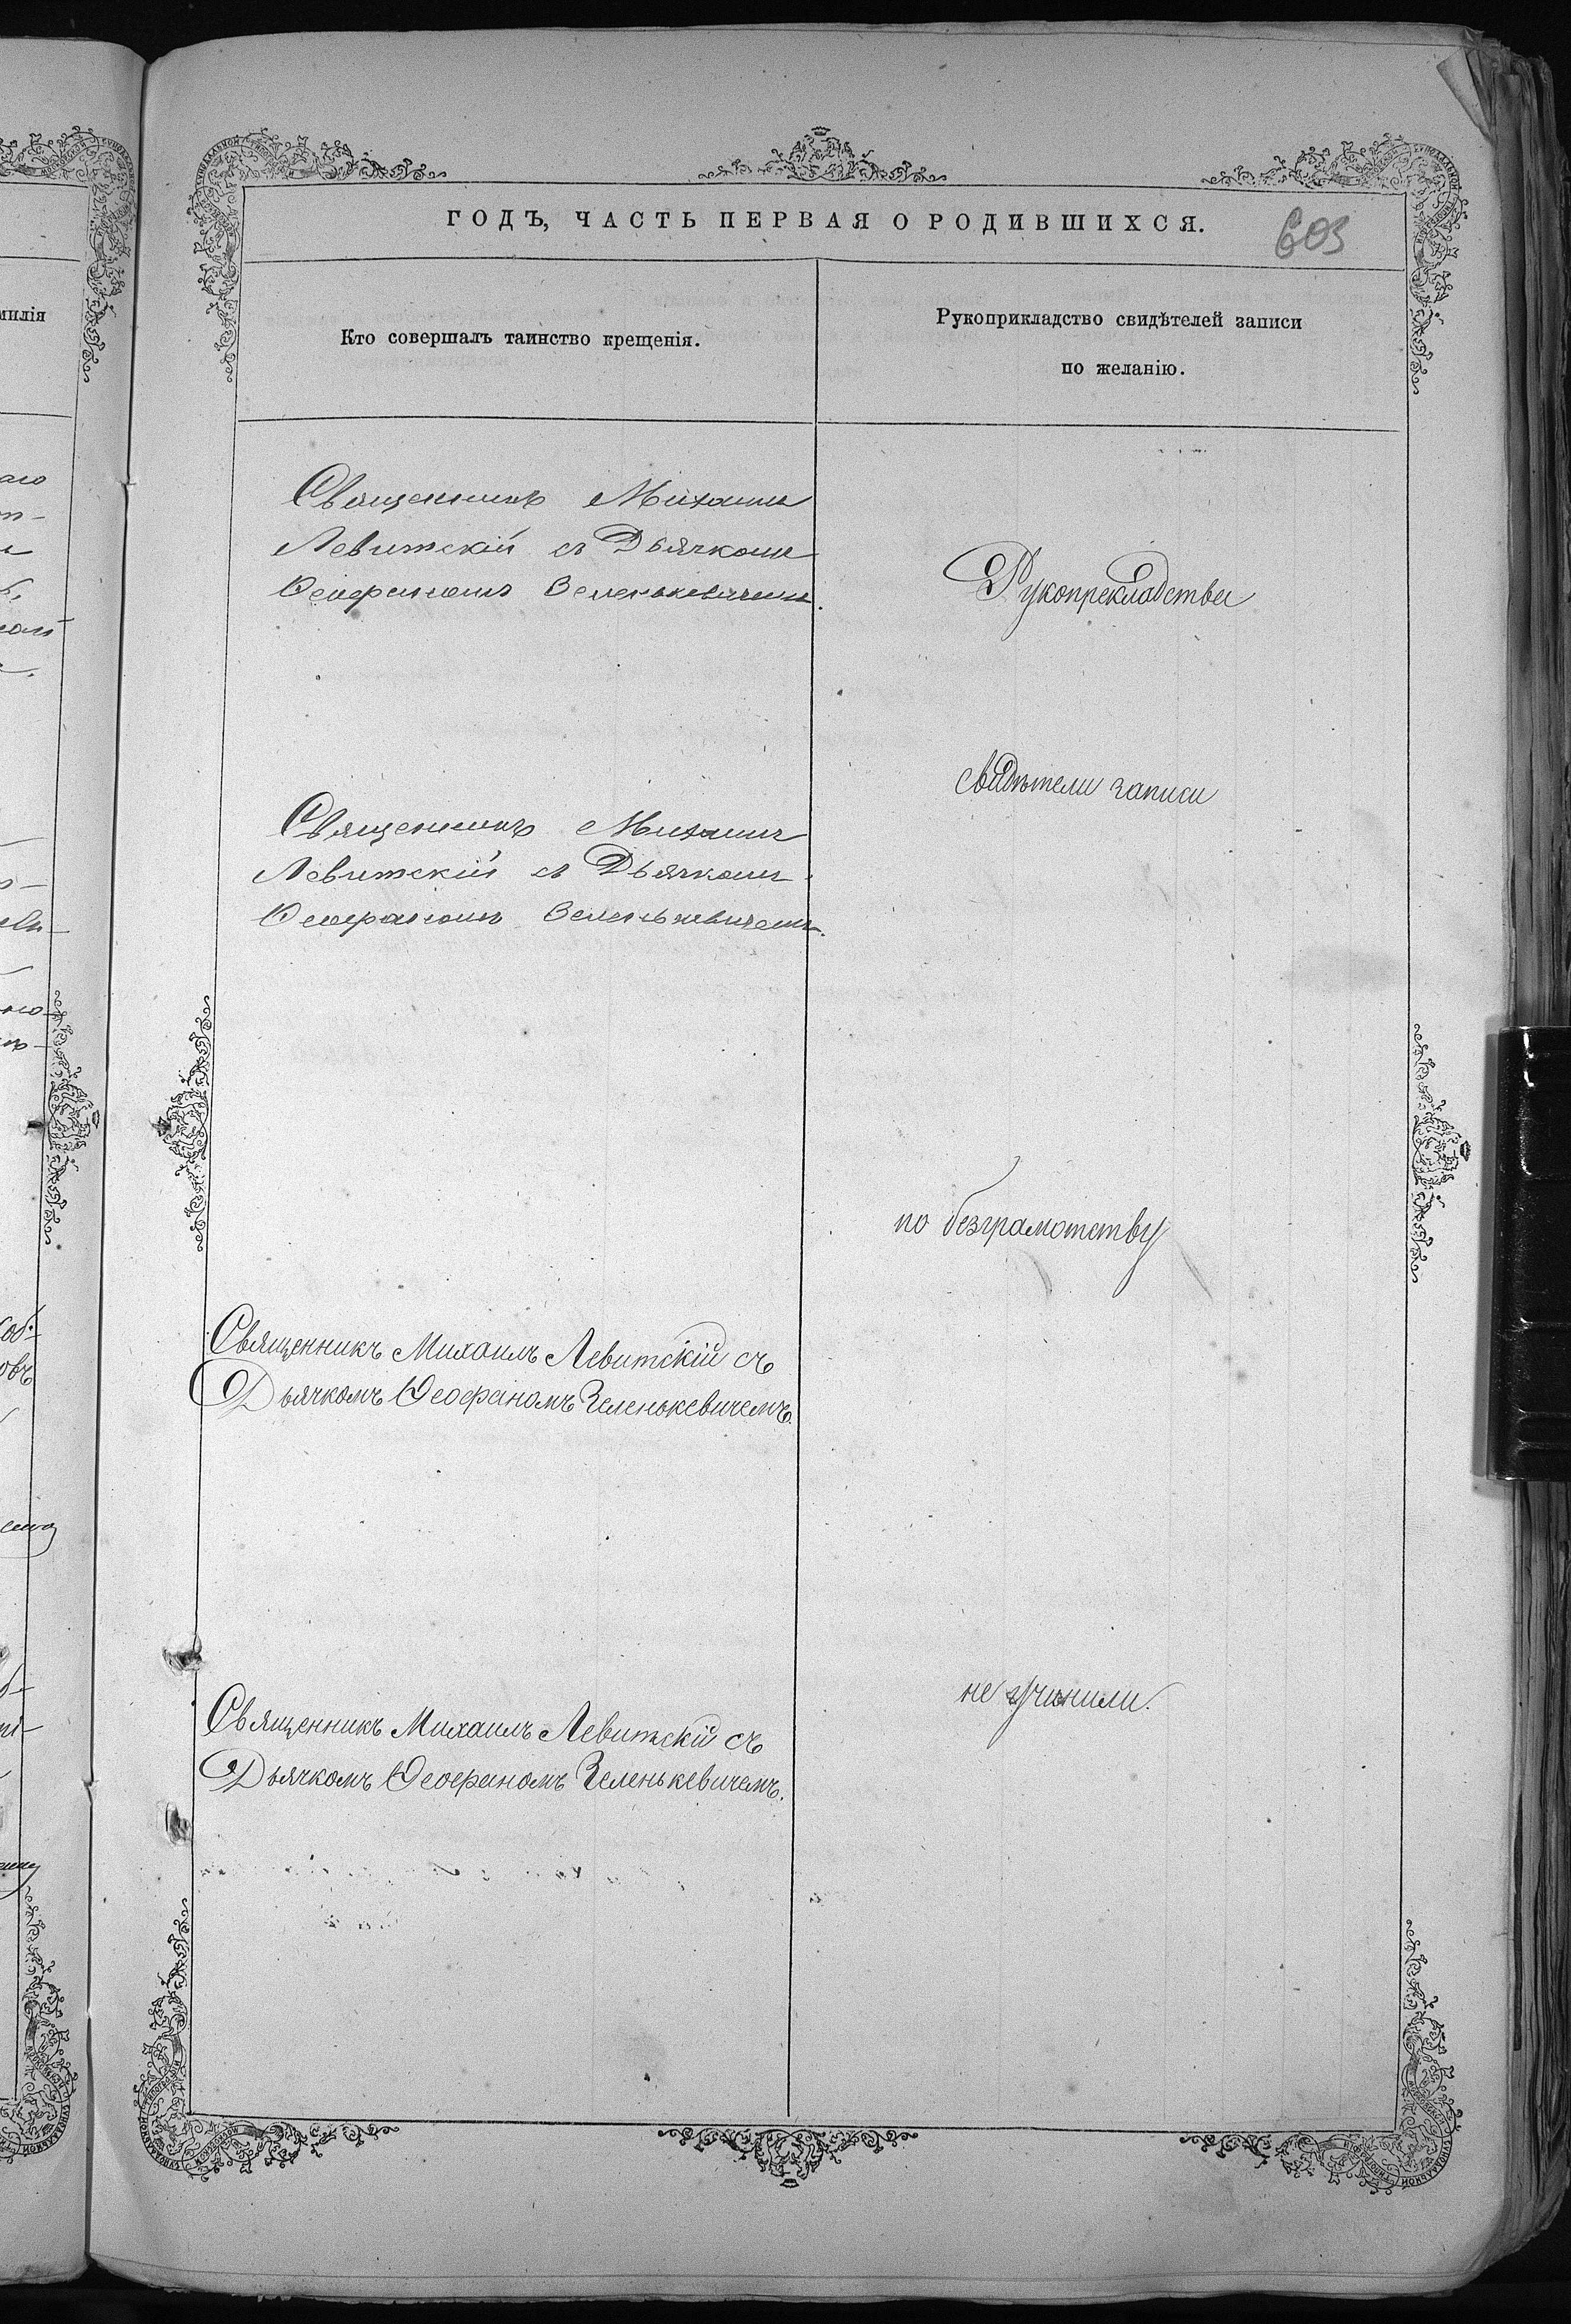 ГОДЪ, ЧАСТЬ ПЕРВАЯ О РОДИВШИХСЯ.
603
Кто совершалъ таинство крещенія.
Рукоприкладство свидѣтелей записи
по желанію.
Священникъ Михаилъ
Левитскій съ Дьячкомъ
Ѳеофаномъ Зеленькевичемъ.
Рукопрекладства
Священникъ Михаилъ
Левитскій съ Дьячкомъ
Ѳеофаномъ Зеленькевичемъ.
свидѣтели записи
по безграмотству
Священникъ Михаилъ Левитскій съ
Дьячкомъ Ѳеофаномъ Зеленькевичемъ.
Священникъ Михаилъ Левитскій съ
Дьячкомъ Ѳеофаномъ Зеленькевичемъ.
не учинили.